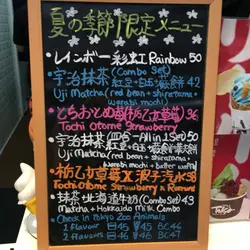 夏の季節限定メニュー
レインボー 彩虹 Rainbow 50
宇治抹茶 (Combo Set)
紅豆+白玉+蕨餅 42
Uji Matcha (red bean + shiratama +
warabi mochi)
とちおとめ 栃乙女草莓 36
Tochi Otome Strawberry
宇治抹茶 (四合一 All in 1 Set) 50
紅豆+白玉+蕨餅
Uji Matcha (red bean + shiratama +
warabi mochi + butter waffle)
栃乙女草莓 X 波子汽水 38
Tochi Otome Strawberry X Ramune
抹茶 北海道牛奶 (Combo) 43
Matcha + Hokkaido milk Combo
Check in Tokyo Zoo Animals
1 Flavour 日45 ¥45 45 46
2 Flavours 日46 46 46